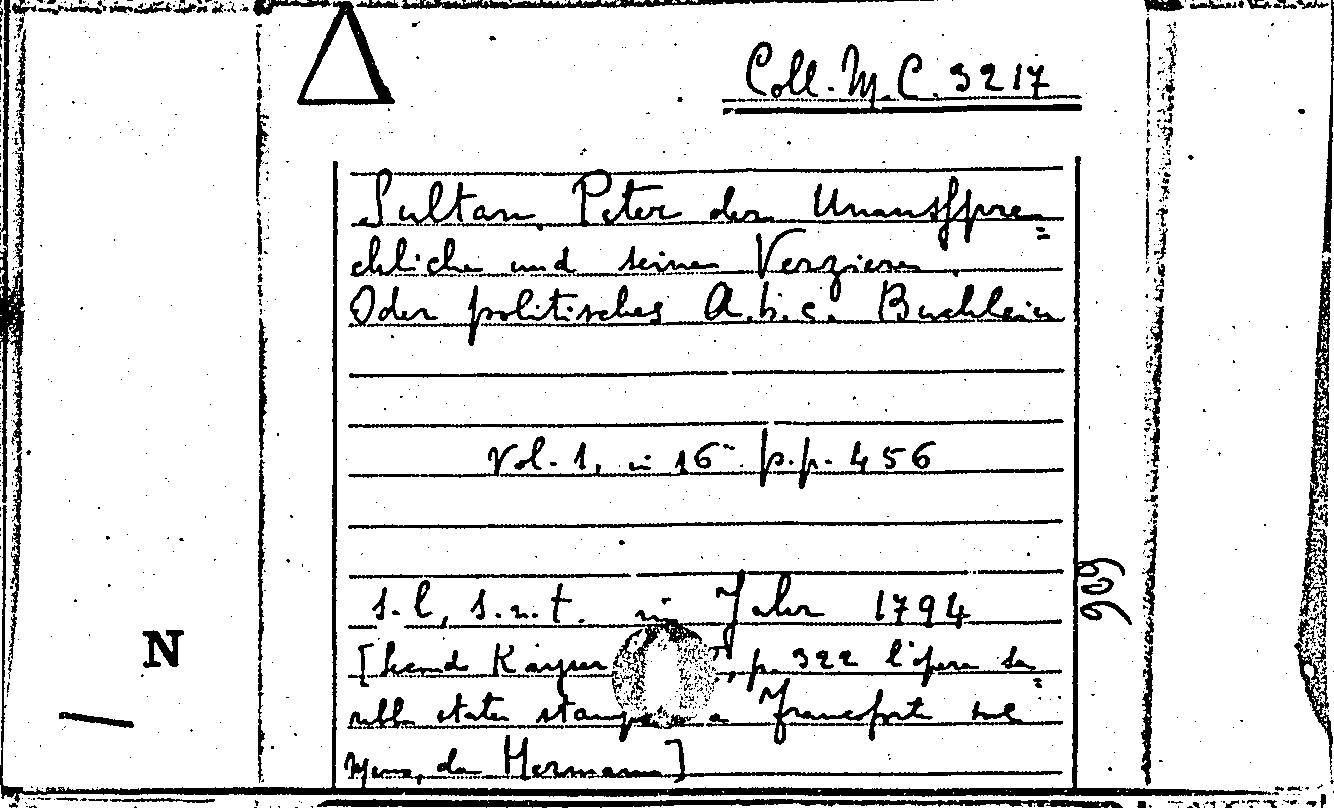 Coll. M. C. 3217
Sultan Peter der Unausspre=
chliche und seiner Verzieren.
Oder politisches A.b.c. Buchlein
Vol. 1, in 16° p.p. 456
s. l., s. n. t. im Jahr 1794
[Kayser p. 322 l'opera sa=
stata a Francoforte sul
da Hermann]
909
N